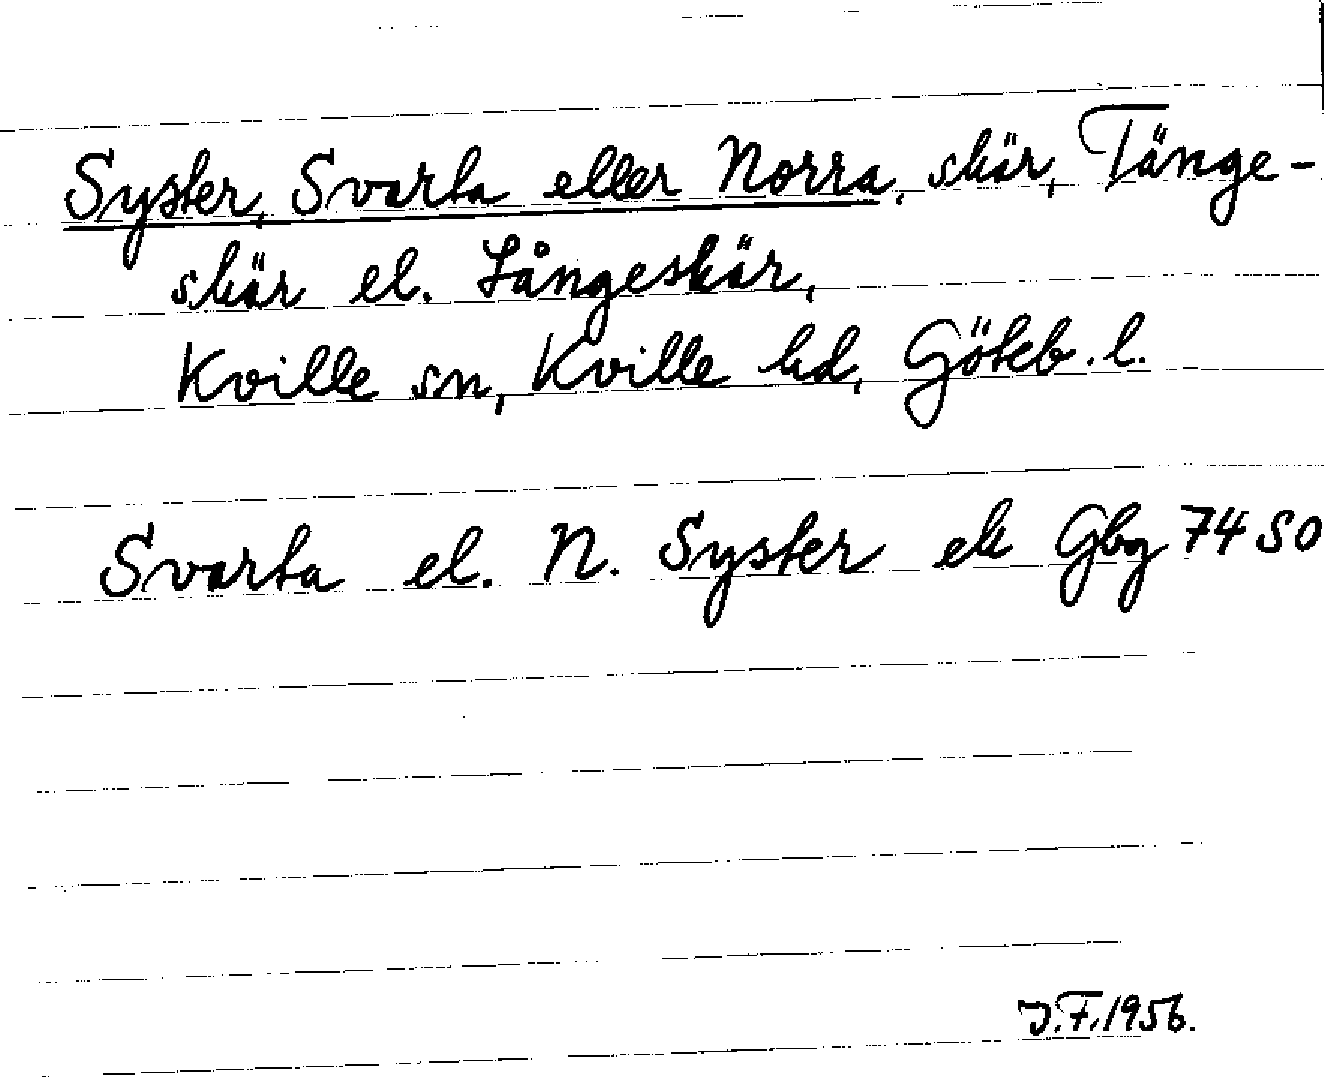 Syster, Svarta eller Norra, skär, Tänge-
skär el. Långeskär,
Kville sn, Kville hd, Göteb. l.
Svarta el. N. Syster ek Gbg 74 SO
J.F. 1956.